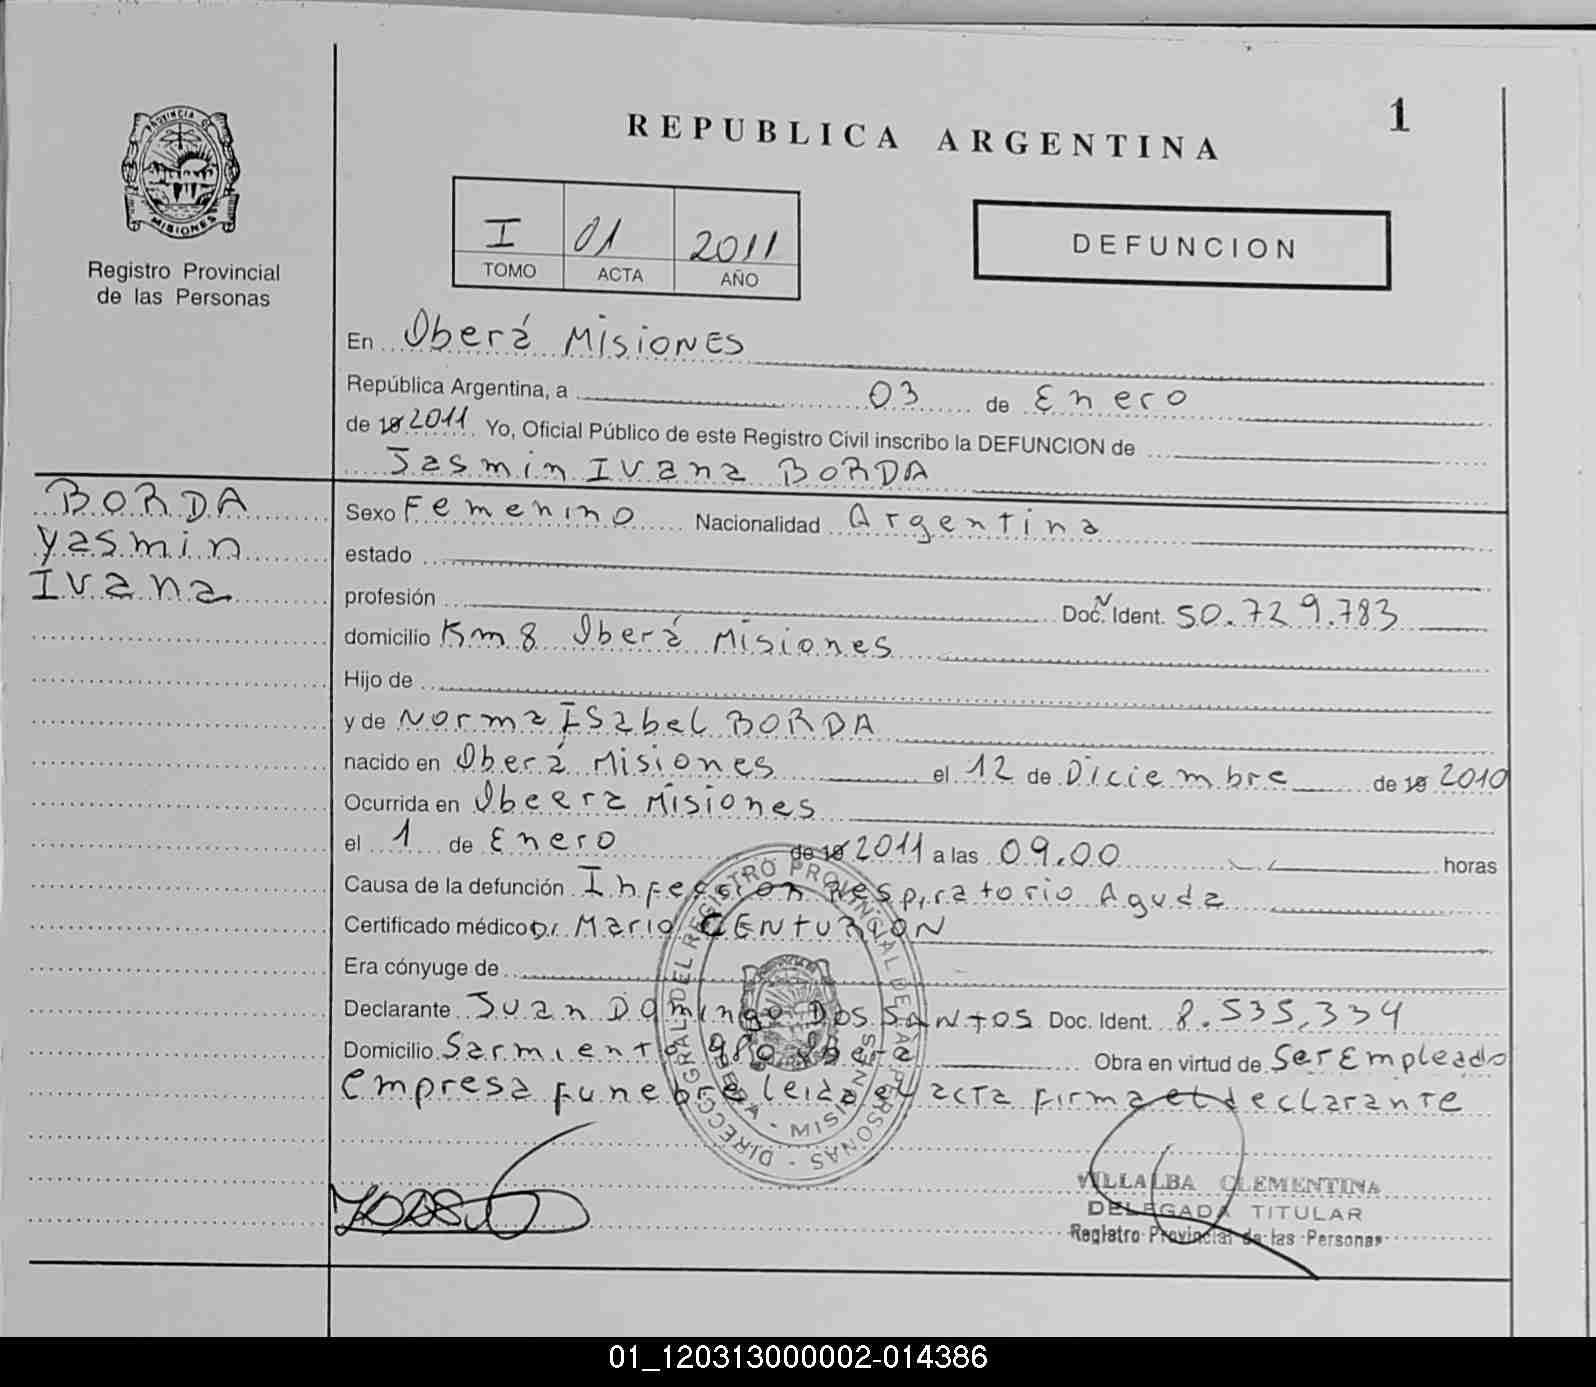 PROVINCIA DE
MISIONES
Registro Provincial
de las Personas
1
REPUBLICA ARGENTINA
I 01 2011
TOMO ACTA AÑO
DEFUNCION
En Oberá Misiones
República Argentina, a 03 de Enero
de 19 2011 Yo, Oficial Público de este Registro Civil inscribo la DEFUNCION de
Jasmin Ivana BORDA
BORDA
Yasmin
Ivana
Sexo Femenino Nacionalidad Argentina
estado
profesión Doc. Ident. 50.729.783
domicilio Km 8 Oberá Misiones
Hijo de
y de Norma Isabel BORDA
nacido en Oberá Misiones el 12 de Diciembre de 19 2010
Ocurrida en Obeera Misiones
el 1 de Enero de 19 2011 a las 09.00 horas
Causa de la defunción Infeccion Respiratorio Aguda
Certificado médico Dr Mario CENTURION
Era cónyuge de
Declarante Juan Domingo DOS SANTOS Doc. Ident. 8.535.334
Domicilio Sarmiento 980 Obera Obra en virtud de Ser Empleado
Empresa funebre leida el acta firma el declarante
DIRECC. GRAL. DEL REGISTRO PROVINCIAL DE LAS PERSONAS
OBERA - MISIONES
VILLALBA CLEMENTINA
DELEGADA TITULAR
Registro Provincial de las Personas
01_120313000002-014386